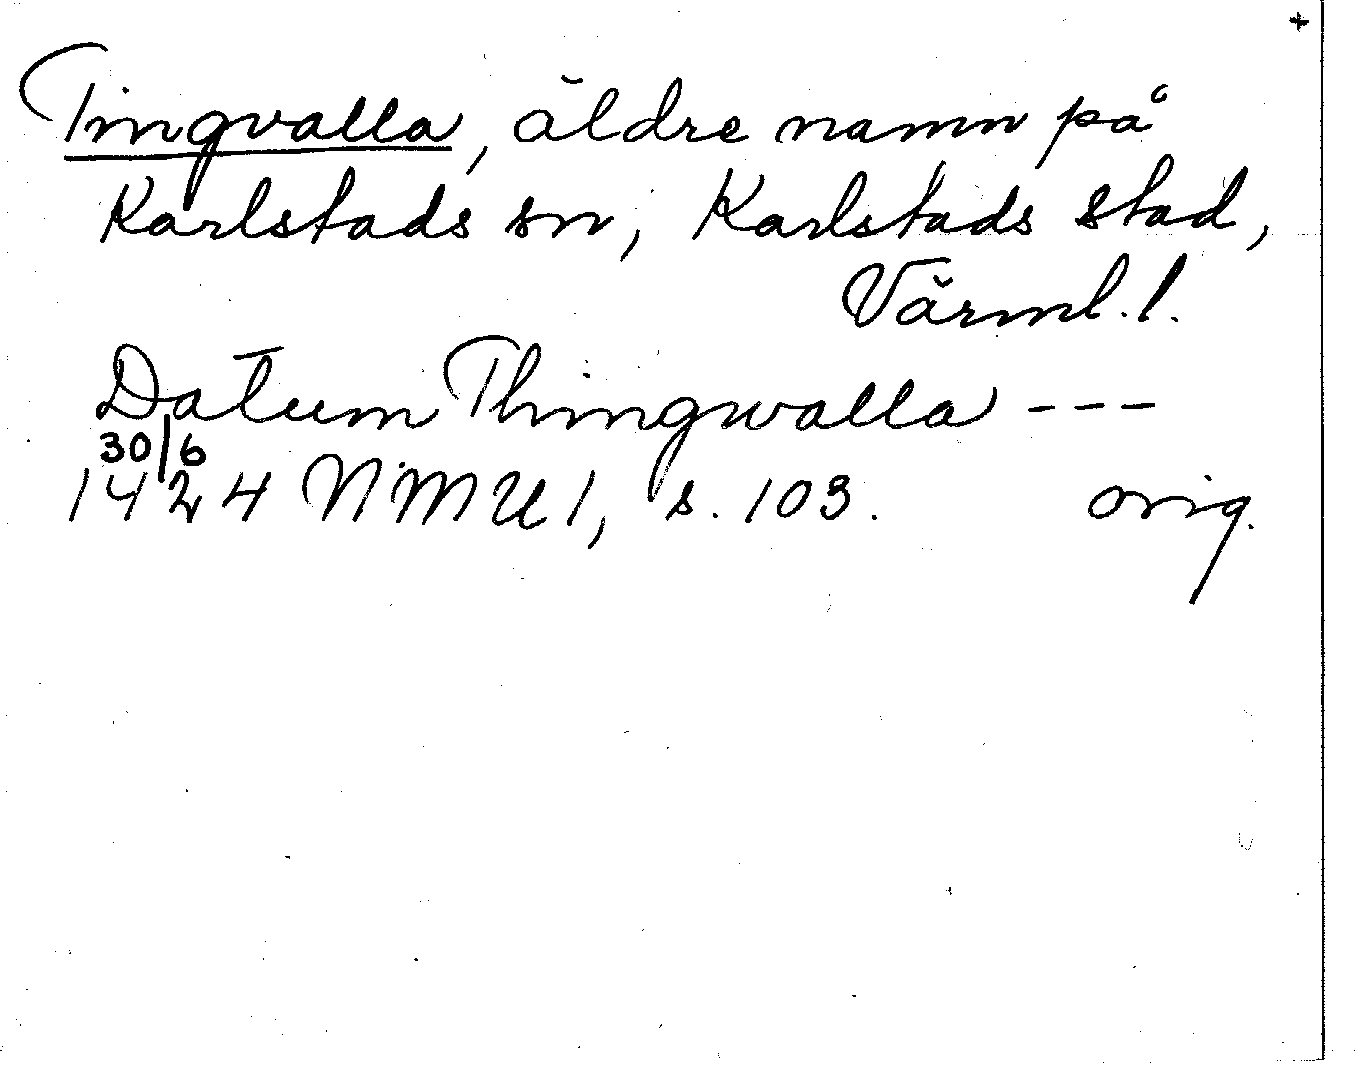 +
Tingvalla, äldre namn på
Karlstads sn, Karlstads stad,
Värml. l.
Datum Thingwalla ---
30/6
1424 NMU 1, s. 103. orig.